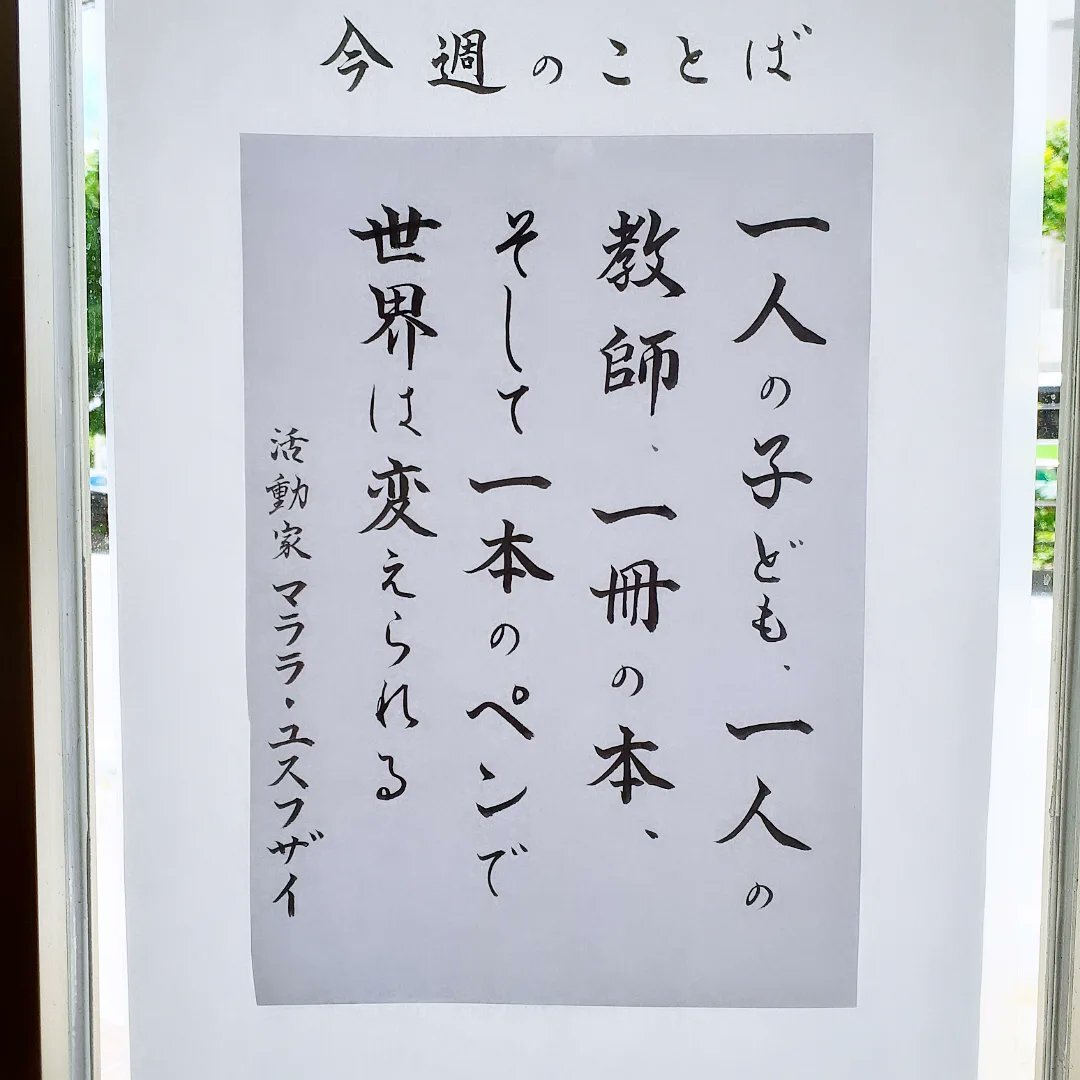 今週のことば
一人の子ども、一人の
教師、一冊の本、
そして一本のペンで
世界は変えられる
活動家 マララ・ユスフザイ